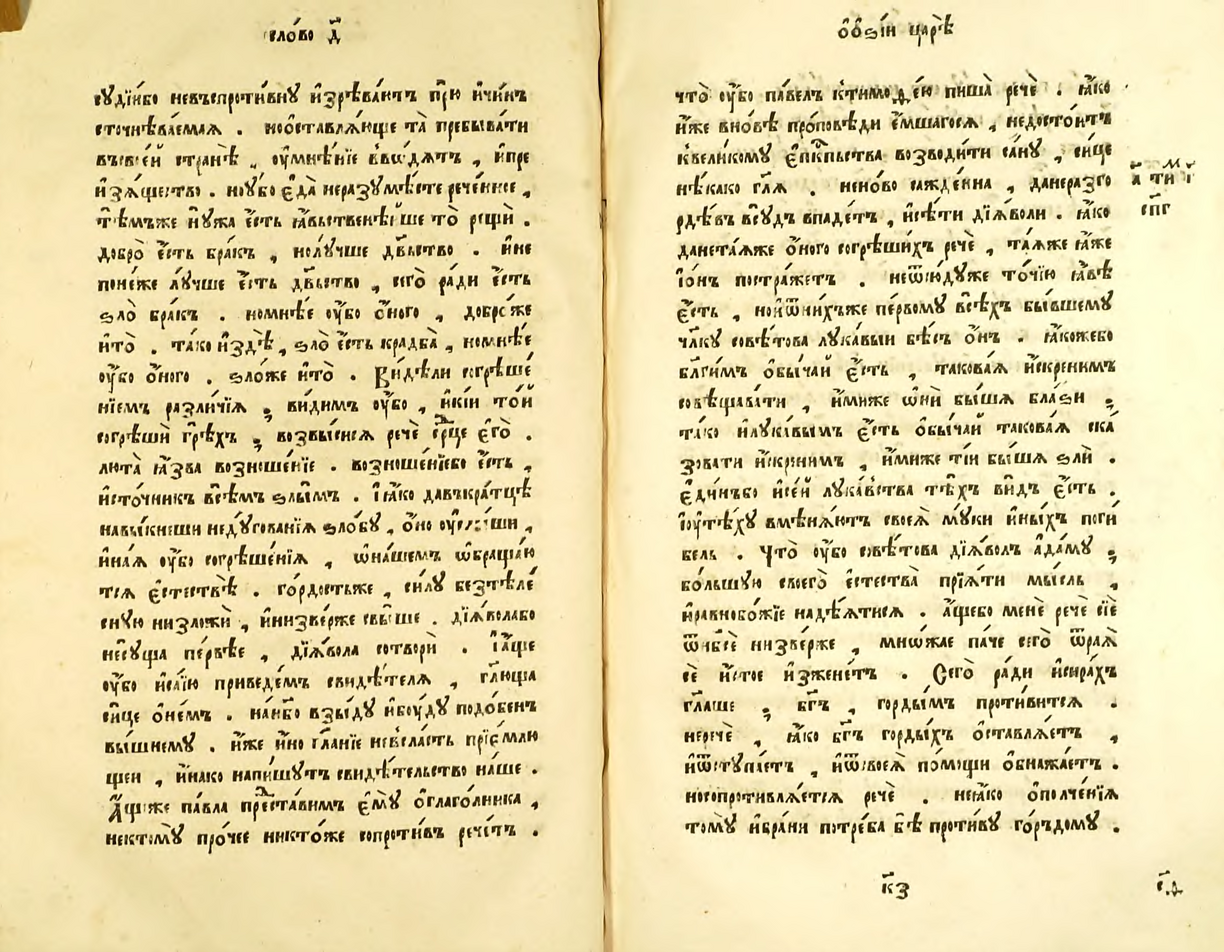 сло́во д҃
судїи́бо невъспроти́вну и҆зрѣва́ютъ прїю и҆чи́нъ
сточнѣ́ваемая . ноѡ҆ставлѧ́юще та̀ пребыва́ти
въсве́й странѣ̀ , ѹ҆мнѣ́нїе вво́дѧтъ , и҆пре
и҆зѧ́щество . ноѹ҆бо є҆да̀ неразумѣ́сте рече́нное ,
тѣ́мъже ну́жа є҆сть ꙗ҆́вьственѣйше то̀ рещѝ .
добро̀ є҆́сть бра́къ , нолу́чше дв҃ьство . и҆не
поне́же лу́чше є҆́сть дв҃ьство , сего̀ ра́ди є҆́сть
ѕло̀ бра́къ . номнѣ́е ѹ҆́бо о҆́ного , добро́же
и҆то̀ . та́ко и҆здѣ̀ , ѕло̀ є҆́сть кра́дба , номнѣ́е
ѹ҆́бо о҆́ного . ѕло́же и҆то̀ . Ви́дѣли согрѣше́
нїемъ разли́чїѧ ; ви́димъ ѹ҆́бо , и҆кі́и то́й
согрѣшѝ грѣ́хъ ; возвы́сисѧ речѐ ср҃це є҆го̀ .
люта̀ ꙗ҆́зва возноше́нїе . возноше́нїебо є҆́сть ,
и҆сто́чникъ всѣ́мъ ѕлы́мъ . І҆ ꙗ҆́ко давъкра́тцѣ
навы́кнеши неду́гованїѧ ѕло́бу , о҆́но ѹ҆слы́ши ,
и҆на́ѧ ѹ҆́бо согрѣше́нїѧ , ѡ҆на́шемъ ѡ҆браща́ю
тсѧ є҆стествѣ̀ . го́рдостьже , си́лу безтѣле́
сную низложѝ , и҆низве́рже свы́ше . дїѧ́волабо
несу́ща пе́рвѣе , дїѧ́вола сотворѝ . І҆а҆́ще
ѹ҆́бо и҆са́їю приведе́мъ свидѣ́телѧ , гл҃юща
си́це о҆не́мъ . на́нб҃о взы́ду и҆бо́уду подо́бенъ
вы́шнему . и҆́же и҆́но гл҃а́нїе неѡ҆сла́сть прїе́млю
щеи , и҆на́ко напи́шутъ свидѣ́тельство на́ше .
А҆́щеже па́вла предста́вимъ є҆му̀ о҆глаго́лника ,
некто́му про́чее никто́же сопроти́въ рече́тъ .
ѡ҆б̾ѕі́и царѣ̀
что̀ ѹ҆́бо па́велъ ктимоѳе́ю пиша̀ речѐ . ꙗ҆́ко
и҆́же вно́вѣ про́повѣди є҆́мшагосѧ , недосто́итъ
квели́кому є҆пкⷭпьства возводи́ти са́ну , си́це
нѣ́како гл҃ѧ . нено́во сажде́нна , данеразго
рдѣ́въ всу́дъ впаде́тъ , и҆сѣ́ти дїѧ́воли . ꙗ҆́ко
данета́ѧже о҆́ного согрѣши́хъ речѐ , та́ѧже ꙗ҆́же
і҆о́нъ постра́жетъ . неѿи҆ду́же то́чїю ꙗ҆́вѣ
є҆́сть , нои҆ѿни́хъже пе́рвому всѣ́хъ бы́вшему
чл҃ку совѣ́това лука́выи бѣ́съ о҆́нъ . ꙗ҆́кожебо
бл҃ги́мъ о҆бы́чай є҆́сть , такова́ѧ и҆́скренимъ
совѣщава́ти , и҆́миже ѡ҆нѝ бы́шѧ бла́ѕи ;
та́ко и҆лука́вымъ є҆́сть о҆бы́чай такова́ѧ ска
зова́ти и҆́скринимъ , и҆́миже ті́и бы́шѧ ѕлѝ .
є҆ди́нъбо и҆се́й лука́вства тѣ́хъ ви́дъ є҆́сть .
і҆ѹ҆тѣ́ху вмѣнѧ́ютъ своеѧ̀ му́ки и҆ны́хъ поги́
бель . Что̀ ѹ҆́бо совѣ́това дїѧ́волъ а҆да́му ;
бо́льшую своего̀ є҆стества̀ прїѧ́ти мы́сль ,
и҆равнобо́жїе надѣ́ѧтисѧ . а҆́щебо менѐ речѐ сїѐ
ѿнб҃сѐ низве́рже , мно́жае па́че сего̀ ѿра́ѧ
сѐ и҆́стое и҆зжене́тъ . Сего̀ ра́ди и҆сира́хъ
гл҃аше ; бг҃ъ , го́рдымъ проти́витсѧ .
неречѐ , ꙗ҆́ко бг҃ъ го́рдыхъ о҆ставлѧ́етъ ,
и҆ѿступа́етъ , и҆ѿсвоеѧ̀ по́мощи о҆бнажа́етъ .
носопротивлѧ́етсѧ речѐ . неꙗ҆́ко о҆полче́нїѧ
тому̀ и҆бра́ни потре́ба бѣ̀ проти́ву го́ръдому .
к҃з